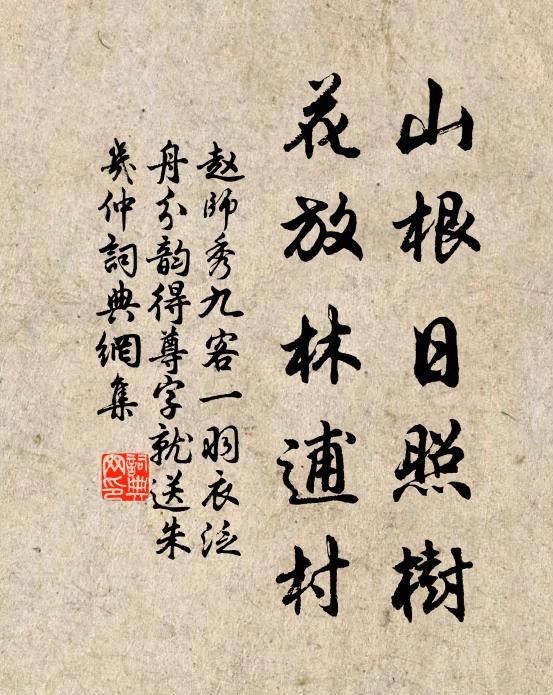 山根日照樹
花放林逋村
趙師秀九客一羽衣泛
舟分韵得尊字就送朱
幾仲詞典網集
詞典
网印